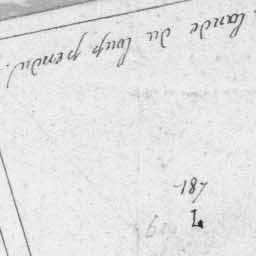 lande du loup pendu.
481
L